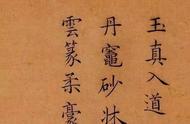 玉真入道
丹竈砂牀
雲篆柔豪